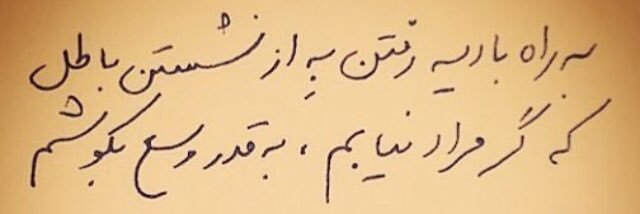 به راه بادیه رفتن بِه از نشستن باطل
که گر مراد نیابم ، به قدر وسع بکوشم